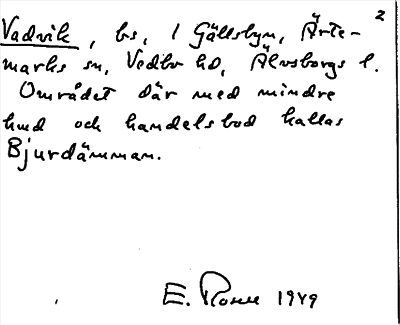 2
Vadvik, bs, 1 Gällsbyn, Ärte-
marks sn, Vedbo hd, Älvsborgs l.
Området där med mindre
hmd och handelsbod kallas
Bjurdämman.
E. 1949